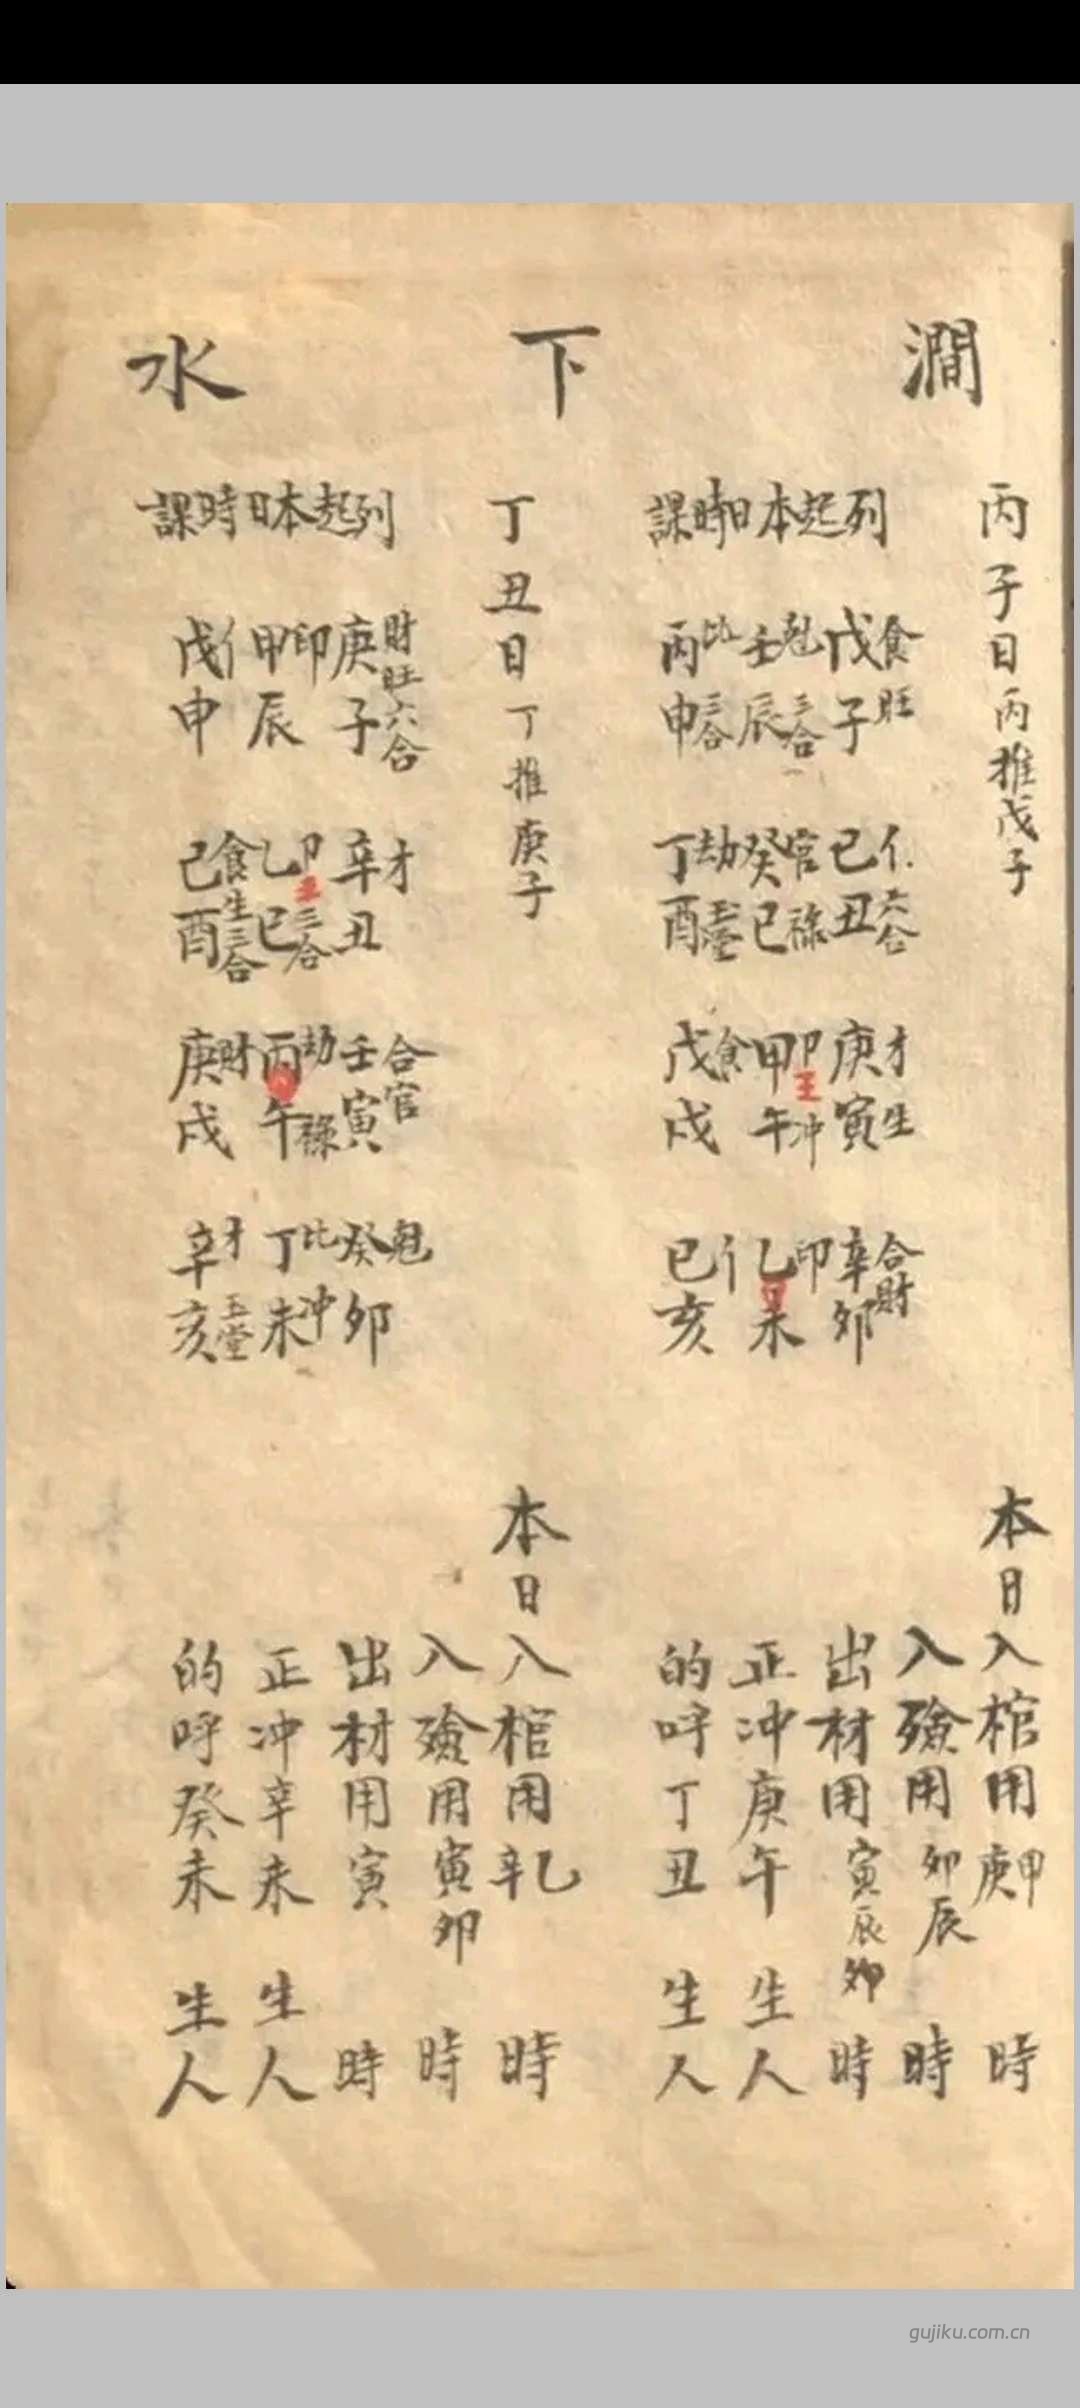 澗下水
丙子日丙推戊子
列起本日時課
戊子 食旺
己丑 六合
庚寅 才生
辛卯 合財
壬辰 尅三合
癸巳 官祿
甲午 卩王冲
乙未 印
丙申 比三合
丁酉 劫玉堂
戊戌 食
己亥
本日入棺用庚甲時
入殮用卯辰時
出材用寅辰卯時
正冲庚午生人
的呼丁丑生人
丁丑日丁推庚子
列起本日時課
庚子 財旺六合
辛丑 才
壬寅 合官
癸卯 尅
甲辰 印
乙巳 卩王三合
丙午 劫祿
丁未 比冲
戊申
己酉 食生三合
庚戌 財
辛亥 才玉堂
本日入棺用辛乙時
入殮用寅卯時
出材用寅時
正冲辛未生人
的呼癸未生人
gujiku.com.cn